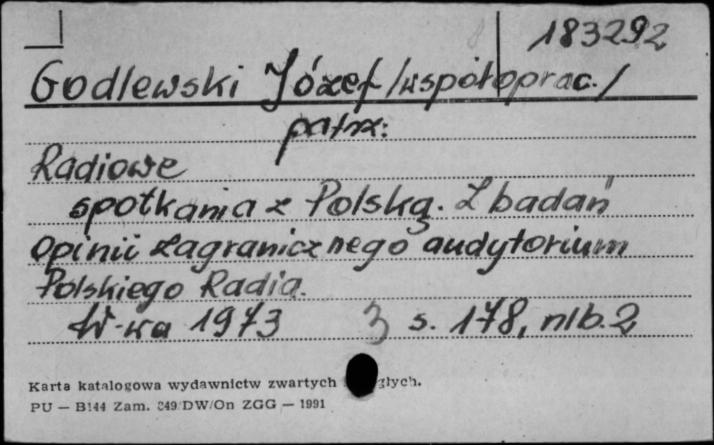 183292
Godlewski Józef /współoprac./
patrz:
Radiowe
spotkania z Polską. Z badań
opinii zagranicznego audytorium
Polskiego Radia.
W-wa 1973 3 s. 178, nlb. 2
Karta katalogowa wydawnictw zwartych głych.
PU — B144 Zam. 349/DW/On ZGG — 1991